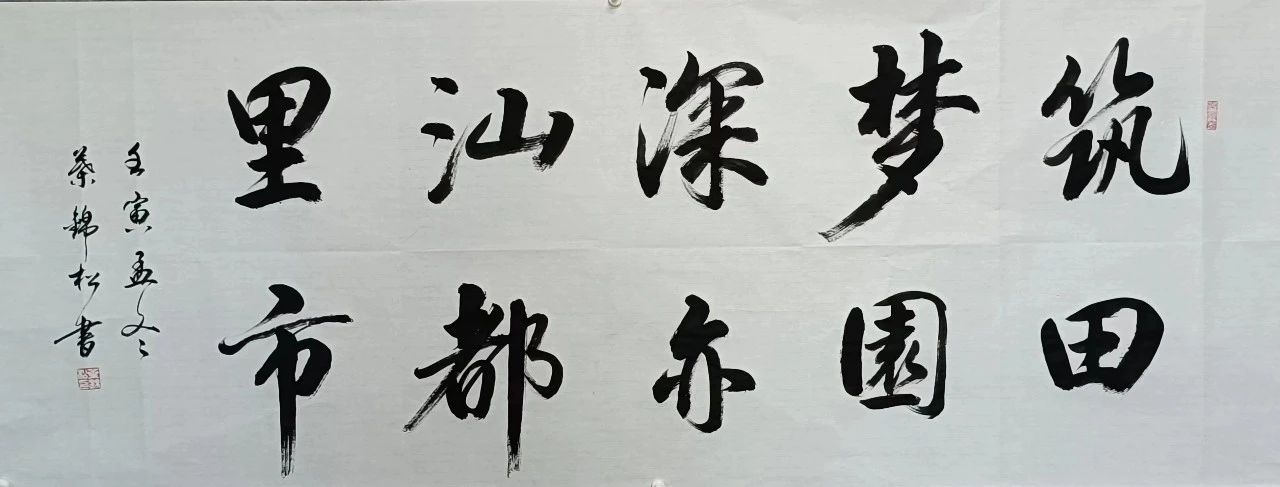 筑梦深汕里
田園亦都市
壬寅孟冬
葉錦松書